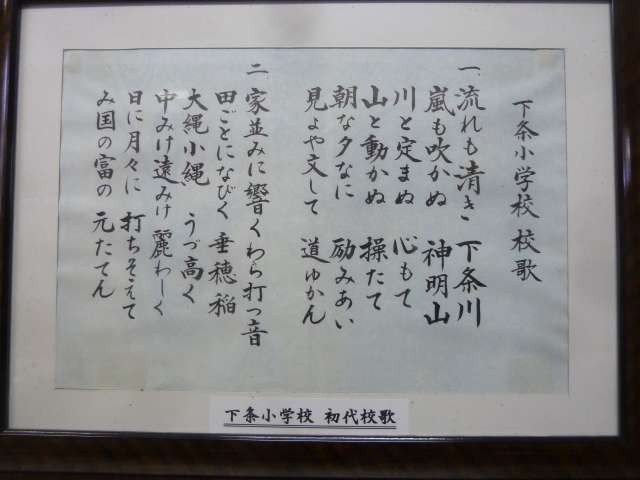 下条小学校 校歌
一、流れも清き 下条川
嵐も吹かぬ 神明山
川と定まぬ 心もて
山と動かぬ 操たて
朝な夕なに 励みあい
見よや文して 道ゆかん
二、家並みに響くわら打つ音
田ごとになびく 垂穂稲
大縄小縄 うづ高く
中みけ遠みけ 麗わしく
日に月々に 打ちそえて
み国の富の 元たてん
下条小学校 初代校歌